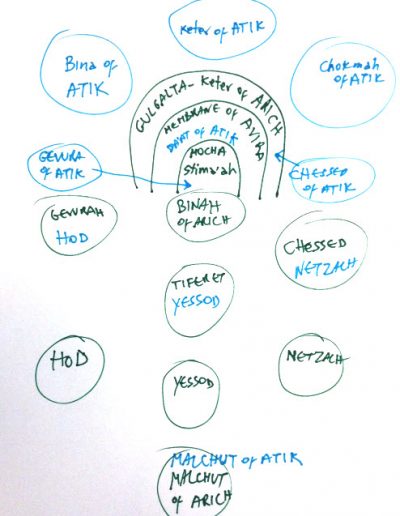 Keter of ATIK
Bina of
ATIK
Chokmah
of ATIK
GULGALTA - Keter of ARICH
MEMBRANE of AVIRA
DAAT of ATIK
MOCHA
Stima'ah
GEVURA
of ATIK
CHESSED
of ATIK
BINAH
OF ARICH
GEVURAH
HOD
CHESSED
NETZACH
TIFERET
YESSOD
HOD
YESSOD
NETZACH
MALCHUT of ATIK
MALCHUT
of ARICH